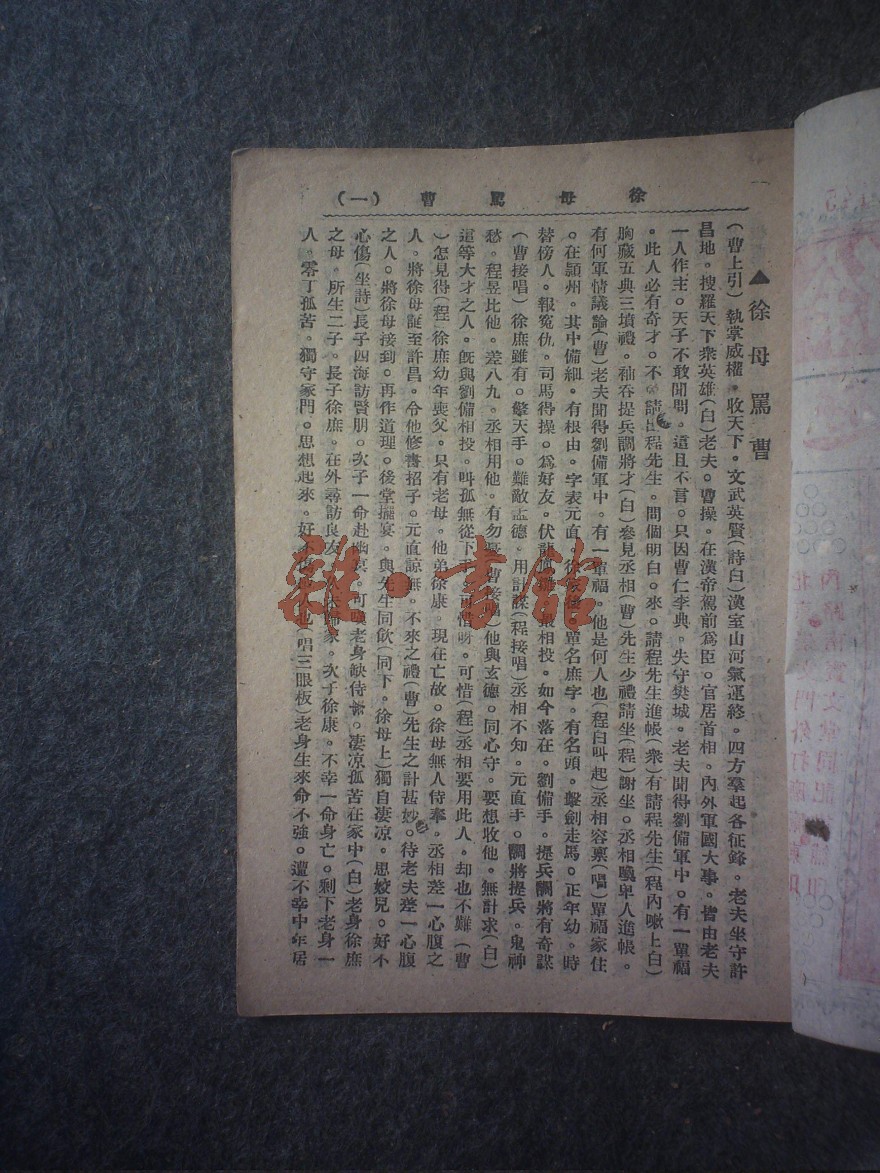 徐母罵曹(一)
▲徐母罵曹
(曹上引)執掌威權。收天下。文武英賢(詩白)漢室山河氣運終。四方羣起各征鋒。老夫坐守許
昌地。搜羅天下衆英雄(白)老夫。曹操。在漢帝駕前爲臣。官居首相。內外軍國大事。皆由老夫
一人作主。天子不敢聞問。這且不言。只因曹仁李典。失守樊城。老夫聞得劉備軍中。有一單福
。此人必有奇才。不 請 程先生。問個明白。來。請程先生進帳(衆)有請程先生(程內嗽上白)
胸藏五典三墳禮。袖吞提兵調將才(白)參見丞相(曹)先生少禮請坐(程)謝坐。丞相喚卑人進帳。
有何軍情議論(曹)老夫聞得劉備軍中。有一單福。他是何人也(程白叫起)丞相容禀(唱)單福家住
。在頴州。其中備細。有根由。字表元直。徐家後。單名庶字。有名頭。擊劍走馬。正年幼。時
替傍人。報寃仇。司馬得操。爲好友。伏龍 相投。如今落在。劉備手。提兵調將有奇謀
(曹接唱)徐庶雖有。擎天手。難敵孟德。用計謀(程接唱)丞相不知。元直手。調將提兵。鬼神
愁。程昱比他。差八九。丞相用他。有勿 (曹接唱)他與玄德。同心守。要想收他。無計求(白)
這等大才之人。旣與劉備相投。叫孤無從下手。可惜呀。可惜(程)丞相要用此人。却也不難(曹
)怎見得(程)徐庶幼年喪父。只有老母。他弟徐康。現在亡故。徐母無人侍奉。丞相差一心腹之
人。將徐母誆至許昌。令他修書招子。元直諒無。不來之禮(曹)先生之計甚妙。待老夫差一心腹
之人。將徐母接到。再作道理。後堂擺宴。與先生同飲(同下。徐母上)獨自凄凉。思姣兒。好不
心傷(坐詩)長子四海訪賢朋。次子一命赴幽冥。可嘆老身缺侍奉。凄凉孤苦在家中(白)老身徐庶
之母。所生二子。長子徐庶。在外尋訪良友。久未歸家。次子徐康。不幸一命身亡。剩下老身一
人。零丁孤苦。獨守家門。思想起來。好不 也(唱三眼板)老身生來命不強。遭不幸中年居
雜·書館